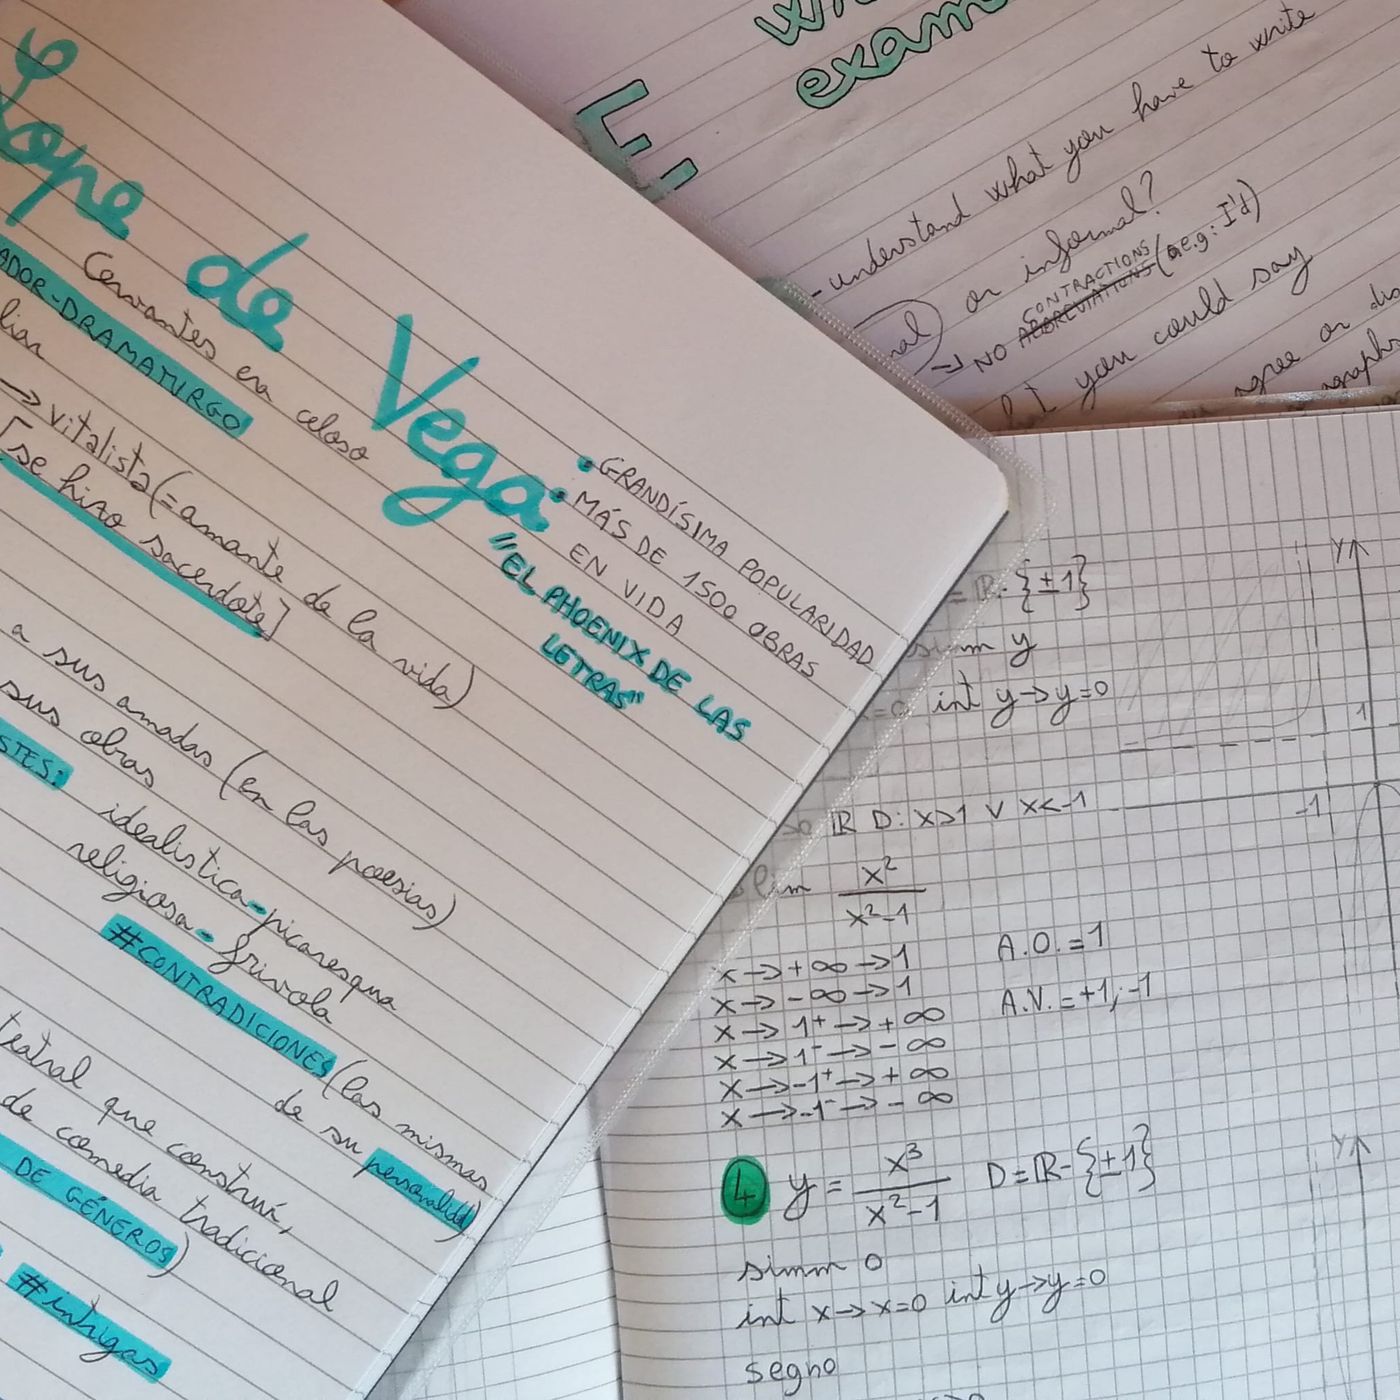 Lope de Vega
Cervantes era celoso
ADOR-DRAMATURGO
→ vitalista (=amante de la vida)
[se hizo sacerdote]
• GRANDÍSIMA POPULARIDAD
• MÁS DE 1500 OBRAS
EN VIDA
"EL PHOENIX DE LAS
LETRAS"
a sus amadas (en las poesias)
sus obras
STES: idealistica-picaresqua
religiosa-frivola
#CONTRADICIONES (las mismas
de su personalidad)
teatral que construí,
de comedia tradicional
DE GÉNEROS)
#intrigas
exam
- understand what you have to write
or informal?
CONTRACTIONS
→ NO ABBREVIATIONS (e.g.: I'd)
you could say
agree or dis
agraphs
= R - {±1}
simm y
x=0 int y→y=0
R D: x>1 V x<-1
lim x²/x²-1
x→+∞→1
x→-∞→1
x→1⁺→+∞
x→1⁻→-∞
x→-1⁺→+∞
x→-1⁻→-∞
A.O.=1
A.V.=+1;-1
y
1
-1
4 y= x³/x²-1 D=R-{±1}
simm 0
int x→x=0 int y→y=0
segno
y